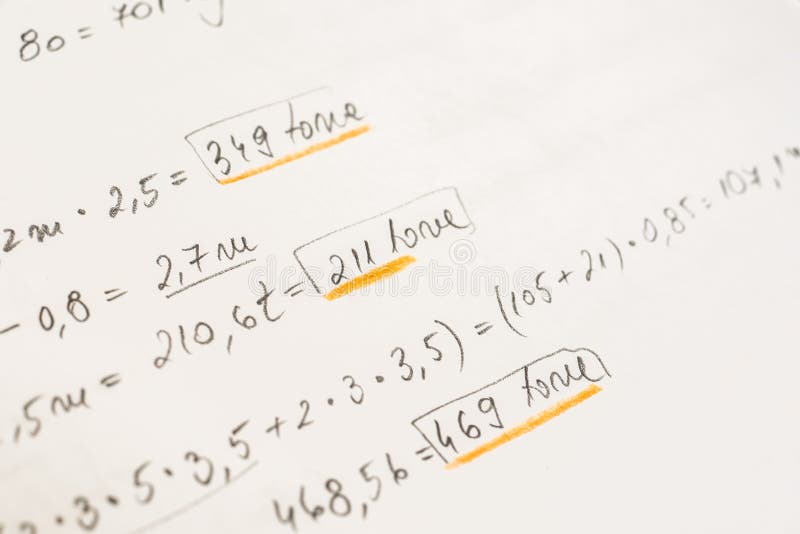 80 = 701
2m · 2,5 = 349 tone
- 0,8 = 2,7m
,5m = 210,6t = 211 tone
· 3 · 5 · 3,5 + 2 · 3 · 3,5) = (105 + 21) · 0,85 = 107,1
468,56 = 469 tone
dreamstime